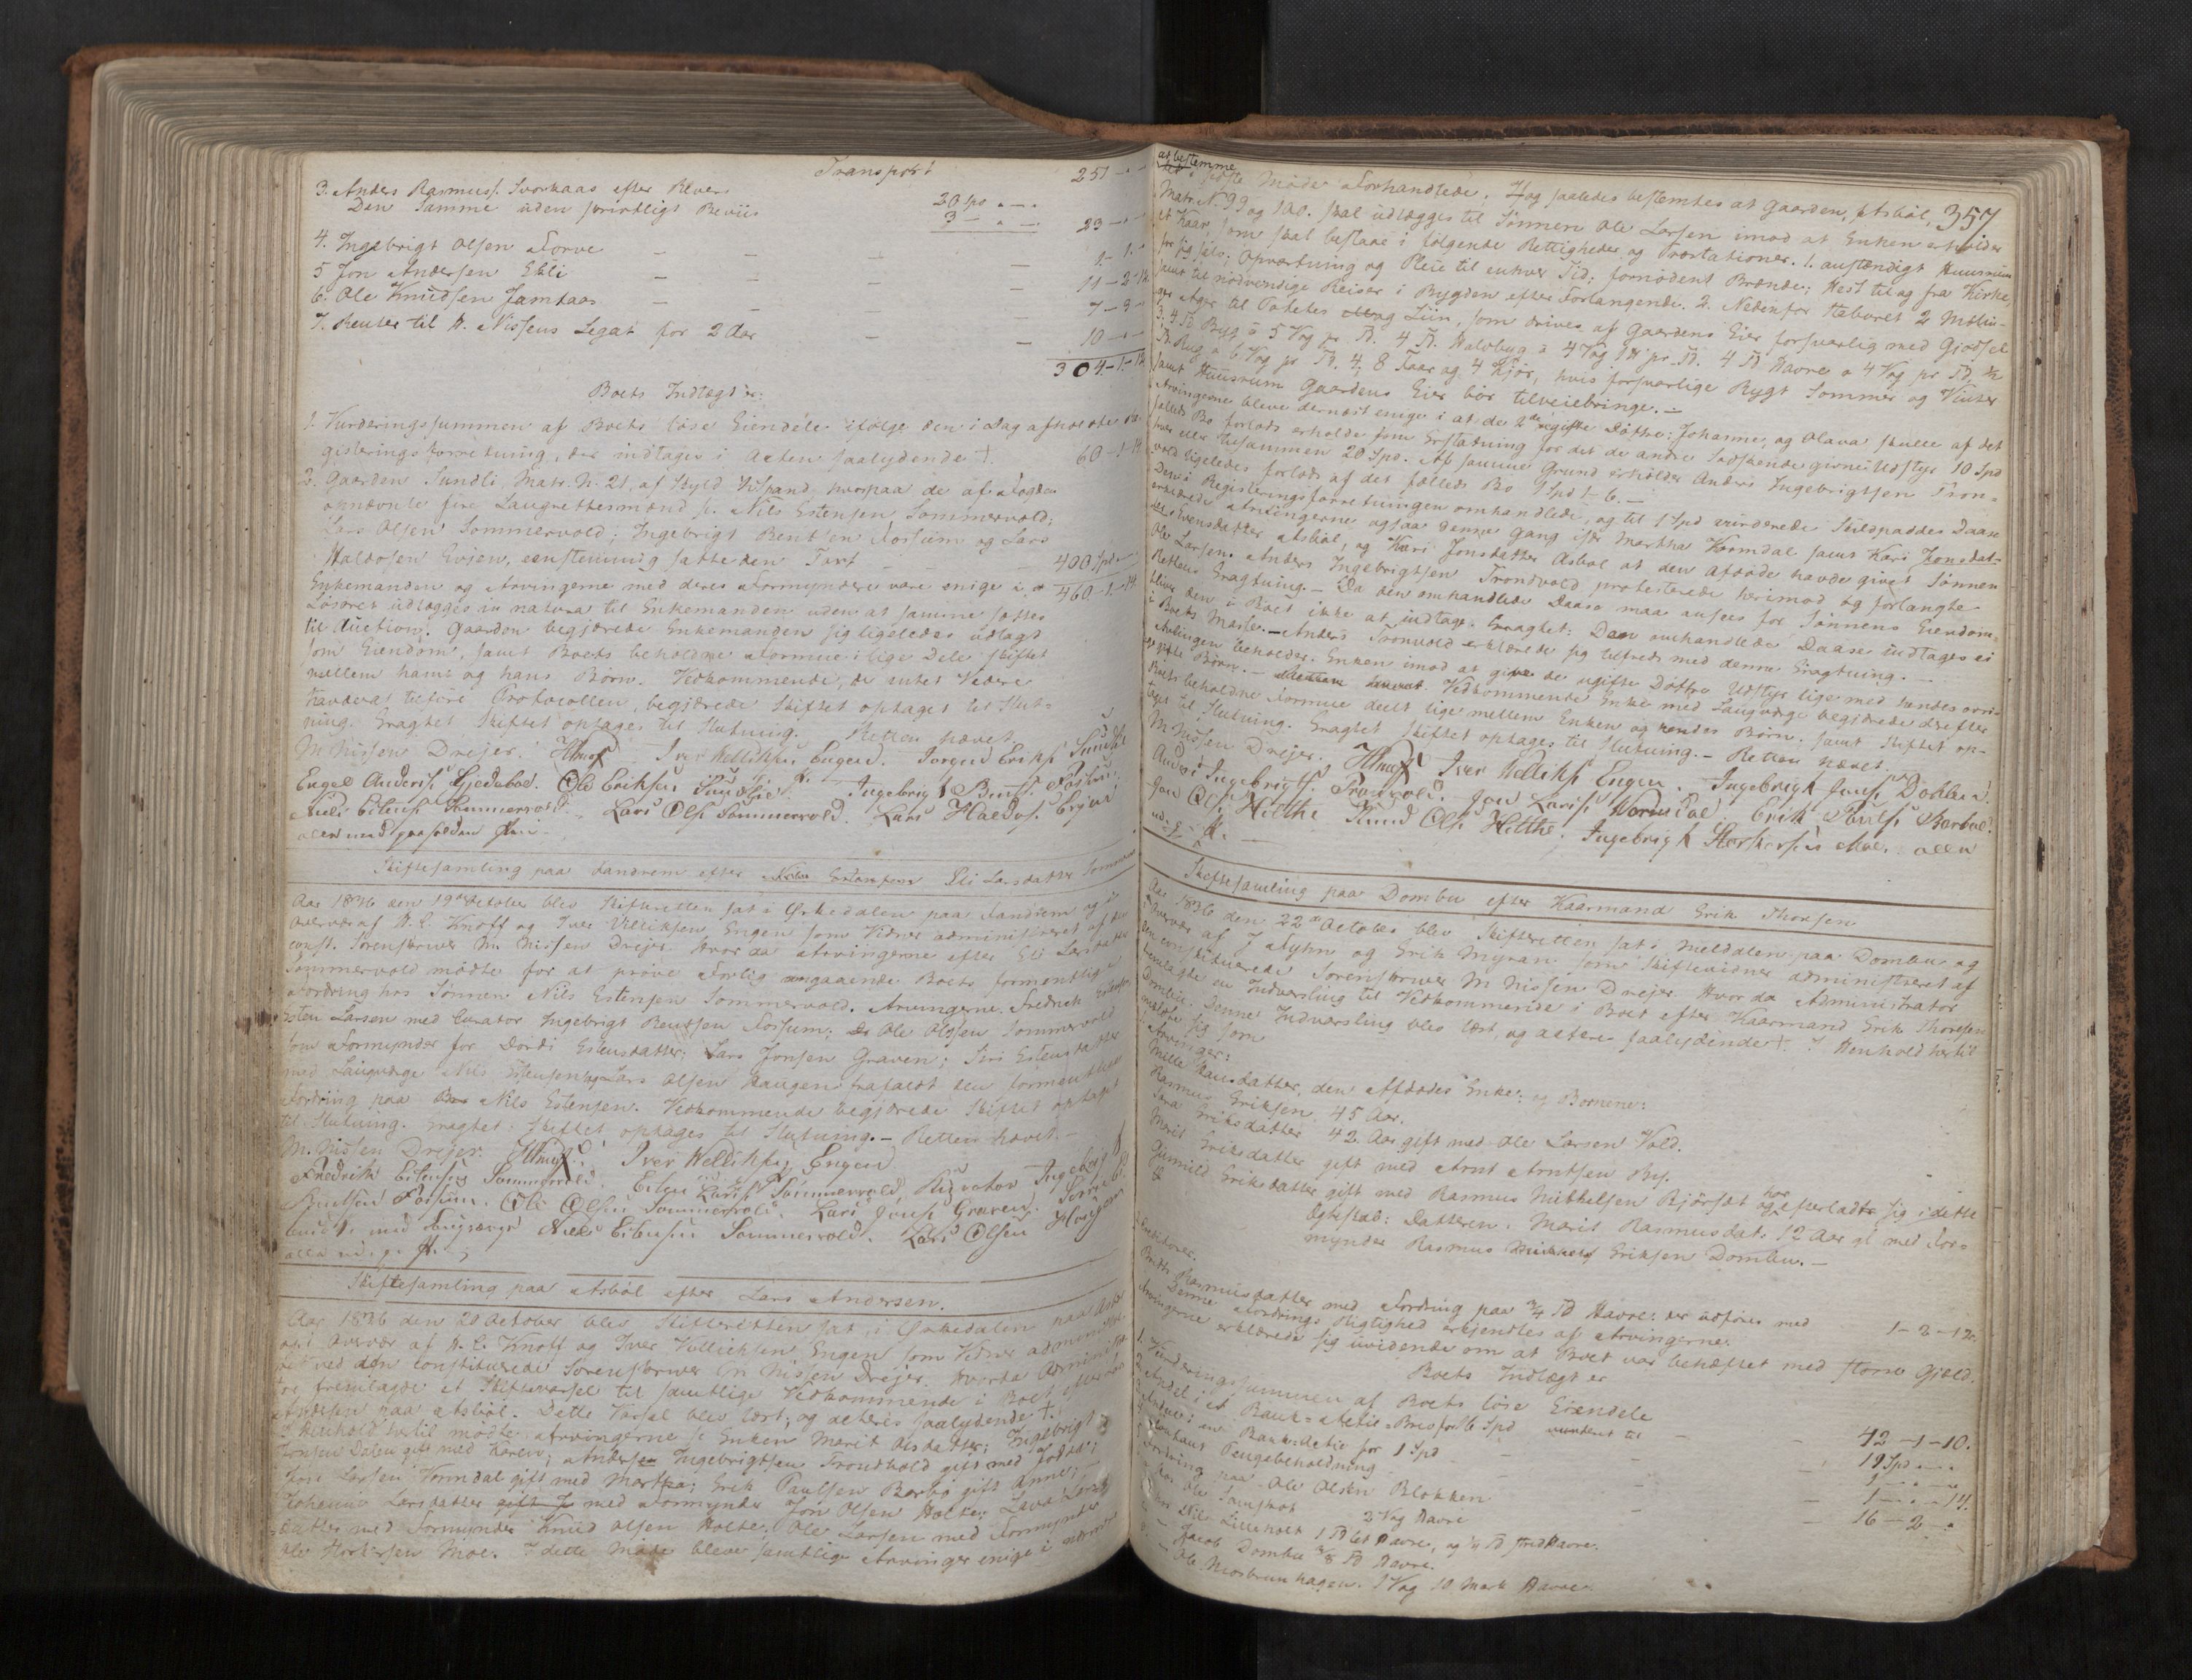 Transport 251 - " -
3. Anders Rasmuss. Svorkaas efter Revers 20 Spd " - "
Den Samme uden skriftligt Beviis 3 - " - 23 - " -
4. Ingebrigt Olsen Forve - - - - 1 - 1 -
5 Jon Andersen Ekli - - - - 11 - 2 - 12
6. Ole Knudsen Jamtaas - - - - 7 - 3 -
7. Renter til H. Nissens Legat for 2 Aar - - 10 - " -
304 - 1 - 12
Boets Indtægter:
1. Vurderingssummen af Boets løse Eiendele ifølge den i Dag afholdte Re-
gisteringsforretning, der indtages i Acten saalydende †. 60 - 1 - 14
2. Gaarden Sundli, Matr. N. 21, af Skyld Spand, hvorpaa de af Fogden
opnævnte fire Laugrettesmænd s. Nils Estensen Sommervold;
Lars Olsen Sommervold; Ingebrigt Bentsen Fossum og Lars
Haldosen Evjen, eenstemmig satte den Taxt - - 400 Spd -
460 - 1 - 14
Enkemanden og Arvingerne med deres Formyndere vare enige i, at
Løsøret udlægges in natura til Enkemanden uden at samme sættes
til Auction. Gaarden begjærede Enkemanden sig ligeledes udlagt
som Eiendom, samt Boets beholdne Formue i lige Dele skiftet
mellem ham og hans Børn. Vedkommende, da intet videre
havdes at tilføre Protocollen, begjærede Skiftet optaget til Slut-
ning. Eragtet Skiftet optages til Slutning. Retten hævet.
M Nissen Drejer. HKnoff Iver Wellikss. Engen. Jørgen Erikss. Sundli
Engel Anderss. Gjedeboe. Ole Eriksen Sundlie. Ingebrigt Bents. Fossum.
Niels Estenss. Sommervold. Lars Ols. Sommervold. Lars Haldos. Evjen
alle med paaholden Pen.
Skiftesamling paa Landrem efter Eli Larsdatter Sommervold
Aar 1836 den 19de October blev Skifteretten sat i Ørkedalen paa Landrem og i
Overvær af H. C. Knoff og Iver Villiksen Engen som Vidner administreret af den
const. Sorenskriver M. Nissen Drejer. Hvor da Arvingerne efter Eli Larsdatter
Sommervold mødte for at prøve Forlig angaaende Boets formentlige
Fordring hos Sønnen Nils Estensen Sommervold. Arvingerne: Fredrik Estensen
Esten Larsen med Curator Ingebrigt Bentsen Fossum; Ole Olsen Sommervold
som Formynder for Dordi Estensdatter; Lars Jonsen Graven; Siri Estensdatter
med Laugværge Nils Estensen og Lars Olsen Haugen frafaldt den formentlige
Fordring paa Nils Estensen. Vedkommende begjærede Skiftet optaget
til Slutning. Eragtet: Skiftet optages til Slutning. - Retten hævet. -
M. Nissen Drejer. HKnoff. Iver Wellikss. Engen
Fredrik Estensen Sommervold. Esten Larss. Sommervold, Kurator Ingebrigt
Bentsen Fossum. Ole Olsen Sommervold. Lars Jons. Graven.
med Laugværge Niels Estensen Sommervold. Lars Olsen Haugen
alle m. p. P.
Skiftesamling paa Asbøl efter Lars Andersen.
Aar 1836 den 20 October blev Skifteretten sat i Ørkedalen paa Asbøl
og i Overvær af H. C. Knoff og Iver Vellichsen Engen som Vidner administre-
ret ved den constituerede Sorenskriver M Nissen Drejer. Hvorda Administra-
tor fremlagde et Skiftevarsel til samtlige Vedkommende i Boet efter Lars
Andersen paa Asbøl. Dette Varsel blev læst, og acteres saalydende †.
I Henhold hertil mødte Arvingerne s. Enken Marit Olsdatter; Ingebrigt
Jonsen Dalen gift med Karen; Anders Ingebrigtsen Trondvold gift med
Jon Larsen Vormdal gift med Martha; Erik Paulsen Borbø gift Anne;
Johanna Larsdatter med Formynder Jon Olsen Holte; Olava Lars-
datter med Formynder Knud Olsen Holte; Ole Larsen med Formynder
Storkersen Moe. I dette Møde bleve samtlige Arvinger enige i nærmere
357
at bestemme
det i sidste Møde Forhandlede. I Dag saaledes bestemtes at Gaarden Asbøl,
Matr. N. 99 og 100. skal udlægges til Sønnen Ole Larsen imod at Enken erholder
et Kaar, som skal bestaae i følgende Rettigheder og Præstationer. 1. anstændigt Huusrum
for sig selv; Opvartning og Pleie til enhver Tid; fornødent Brænde; Hest til og fra Kirke
samt til nødvendige Reiser i Bygden efter Forlangende. 2. Nedenfor Staburet 2 Mæling
Ager til Potetes og Liin, som drives af Gaardens Eier forsvarlig med Gjødsel
3. 4 Td Byg à 5 Vog pr Td. 4 Td. Halvbyg à 4 Vog pr. Td. 4 Td Havre à 4 Vog pr Td, ½
Td. Rug à 6 Vog pr Td. 4. 8 Faar og 4 Kjør, hvis forsvarlige Røgt Sommer og Vinter
samt Huusrum Gaardens Eier bør tilveiebringe. -
Arvingerne bleve dernæst enige i at de 2de ugifte Døttre: Johanna, og Olava skulle af det
fælleds Bo forlods erholde som Erstatning for det de andre Sødskende givne Udstyr 10 Spd
hver eller tilsammen 20 Spd. Af samme Grund erholder Anders Ingebrigtsen Tron-
vold ligeledes forlods af det fælleds Bo 1 Spd 1 - 6. -
Den i Registeringsforretningen omhandlede, og til 1 Spd vurderede Skildpaddes Daase
erklærede Arvingerne ogsaa denne Gang især Martha Vormdal samt Kari Jonsdat-
Evensdatter Asbøl, og Kari Jonsdatter Asbøl at den Afdøde havde givet Sønnen
Ole Larsen. Anders Ingebrigtsen Trondvold protesterede herimod og forlangte
Rettens Eragtning. - Da den omhandlede Daase maa ansees for Sønnens Eiendom,
blive den i Boet ikke at indtage. Eragtet: Den omhandlede Daase indtages ei
i Boets Masse. - Anders Tronvold erklærede sig tilfreds med denne Eragtning. -
Avlingen beholder Enken imod at give de ugifte Døttre Udstyr lige med hendes øvri-
ge gifte Børn. - Vedkommende Enke med Laugværge begjærede derefter
Boets beholdne Formue deelt lige mellem Enken og hendes Børn, samt Skiftet op-
taget til Slutning. Eragtet Skiftet optages til Slutning. - Retten hævet.
M Nissen Drejer. HKnoff Iver Wellikss. Engen. Ingebrigt Jons. Dahlen.
Anders Ingebrigts. Tronvold. Jon Larss. Wormdal. Erik Pouls. Borbøe.
Jon Ols. Holthe Knud Ols. Holthe, Ingebrigt Storkersen Moe. alle
m. p. P. -
Skiftesamling paa Dombu efter Kaarmand Erik Thoresen
Aar 1836 den 22de October blev Skifteretten sat i Meldalen paa Dombu og
i Overvær af J Flyhn og Erik Myran som Skiftevidner administreret af
den constituerede Sorenskriver M Nissen Drejer. Hvor da Administrator
fremlagde en Indvarsling til Vedkommende i Boet efter Kaarmand Erik Thoresen
Dombu. Denne Indvarsling blev læst, og acteres saalydende †. I Henhold hertil
meldte sig som
Arvinger:
Mille Hansdatter, den Afdødes Enke; og Børnene:
Rasmus Eriksen 45 Aar.
Eriksdatter 42 Aar gift med Ole Larsen Vold.
Marit Eriksdatter gift med Arnt Arntsen Bye.
Gunnild Eriksdatter gift med Rasmus Mikkelsen Bjørsæt og har efterladt sig i dette
Ægteskab: Datteren. Marit Rasmusdat. 12 Aar gl med For-
mynder Rasmus Eriksen Dombu. -
Creditorer.
Berith Rasmusdatter med Fordring paa ¾ Td Havre: der udføres med 1 - 2 - 12.
Denne Fordrings Rigtighed erkjendtes af Arvingerne.
Arvingerne erklærede sig uvidende om at Boet var behæftet med større Gjæld.
Boets Indtægt er
1. Vurderingssummen af Boets løse Eiendele - - 42 - 1 - 10.
2. Andel i et Bank-Actie-Brev for 16 Spd vurderet til - - 19 Spd " - "
3. Andel i en Bank-Actie for 1 Spd - - - 1 - " - "
4. Contant Pengebeholdning - - - 1 - " - 14.
5. Fordring paa Ole Olsen Blokken - - - 16 - 2 - "
hos Ole Jamskot 2 Vog Havre
hos Nils Lilleholt 1 Td let Havre, og ¼ Td Havre.
- Jacob Dombu ⅜ Td Havre.
- Ole Mosbrunhagen. 1 Vog 10 Mark Havre.